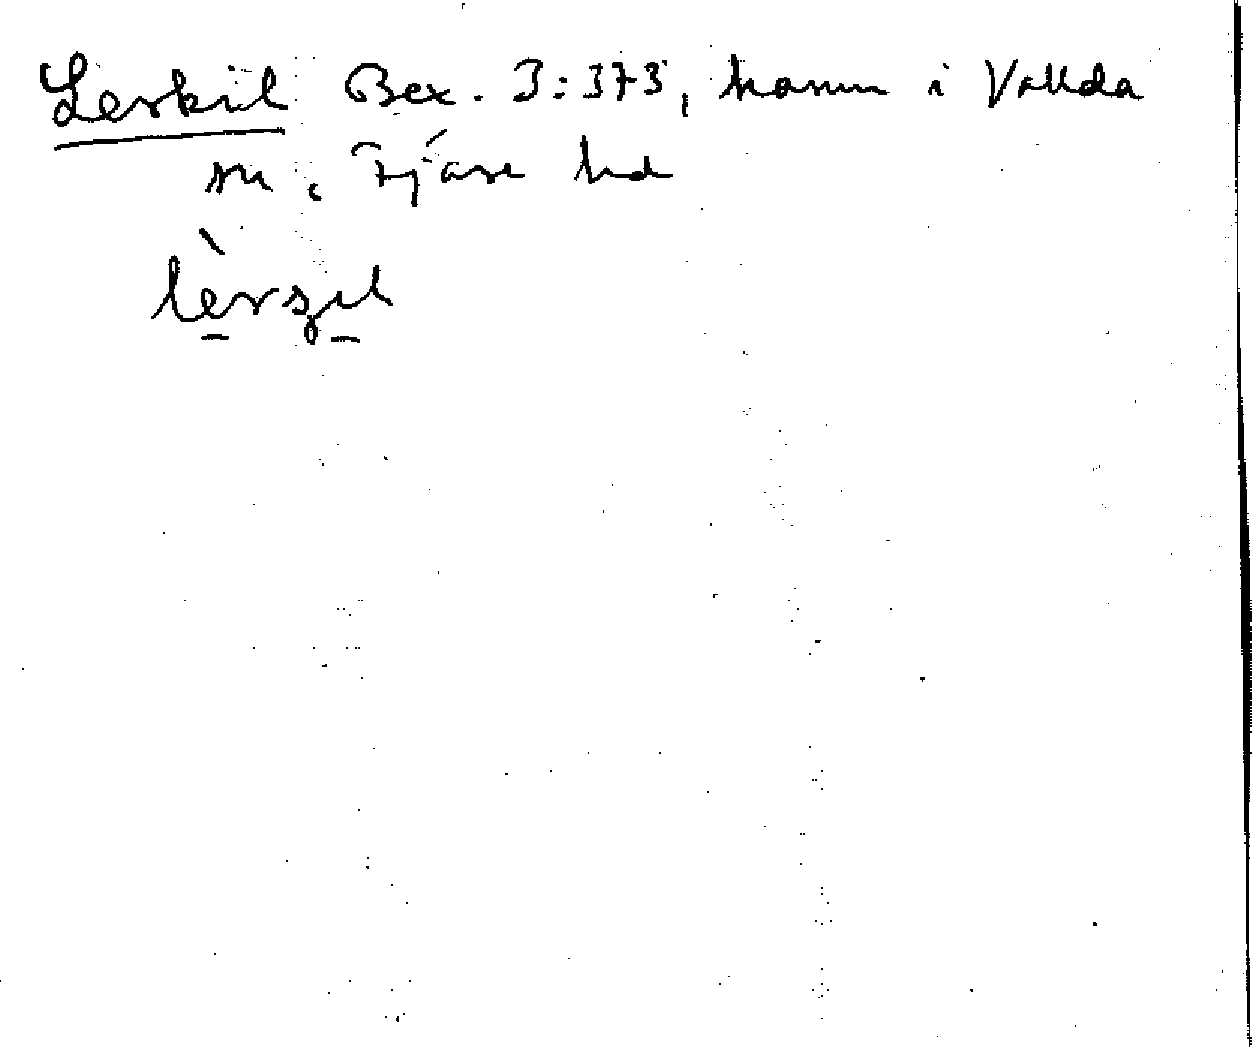 Lerkil Bex. 3:373, hamn i Vallda
sn. Fjäre hd